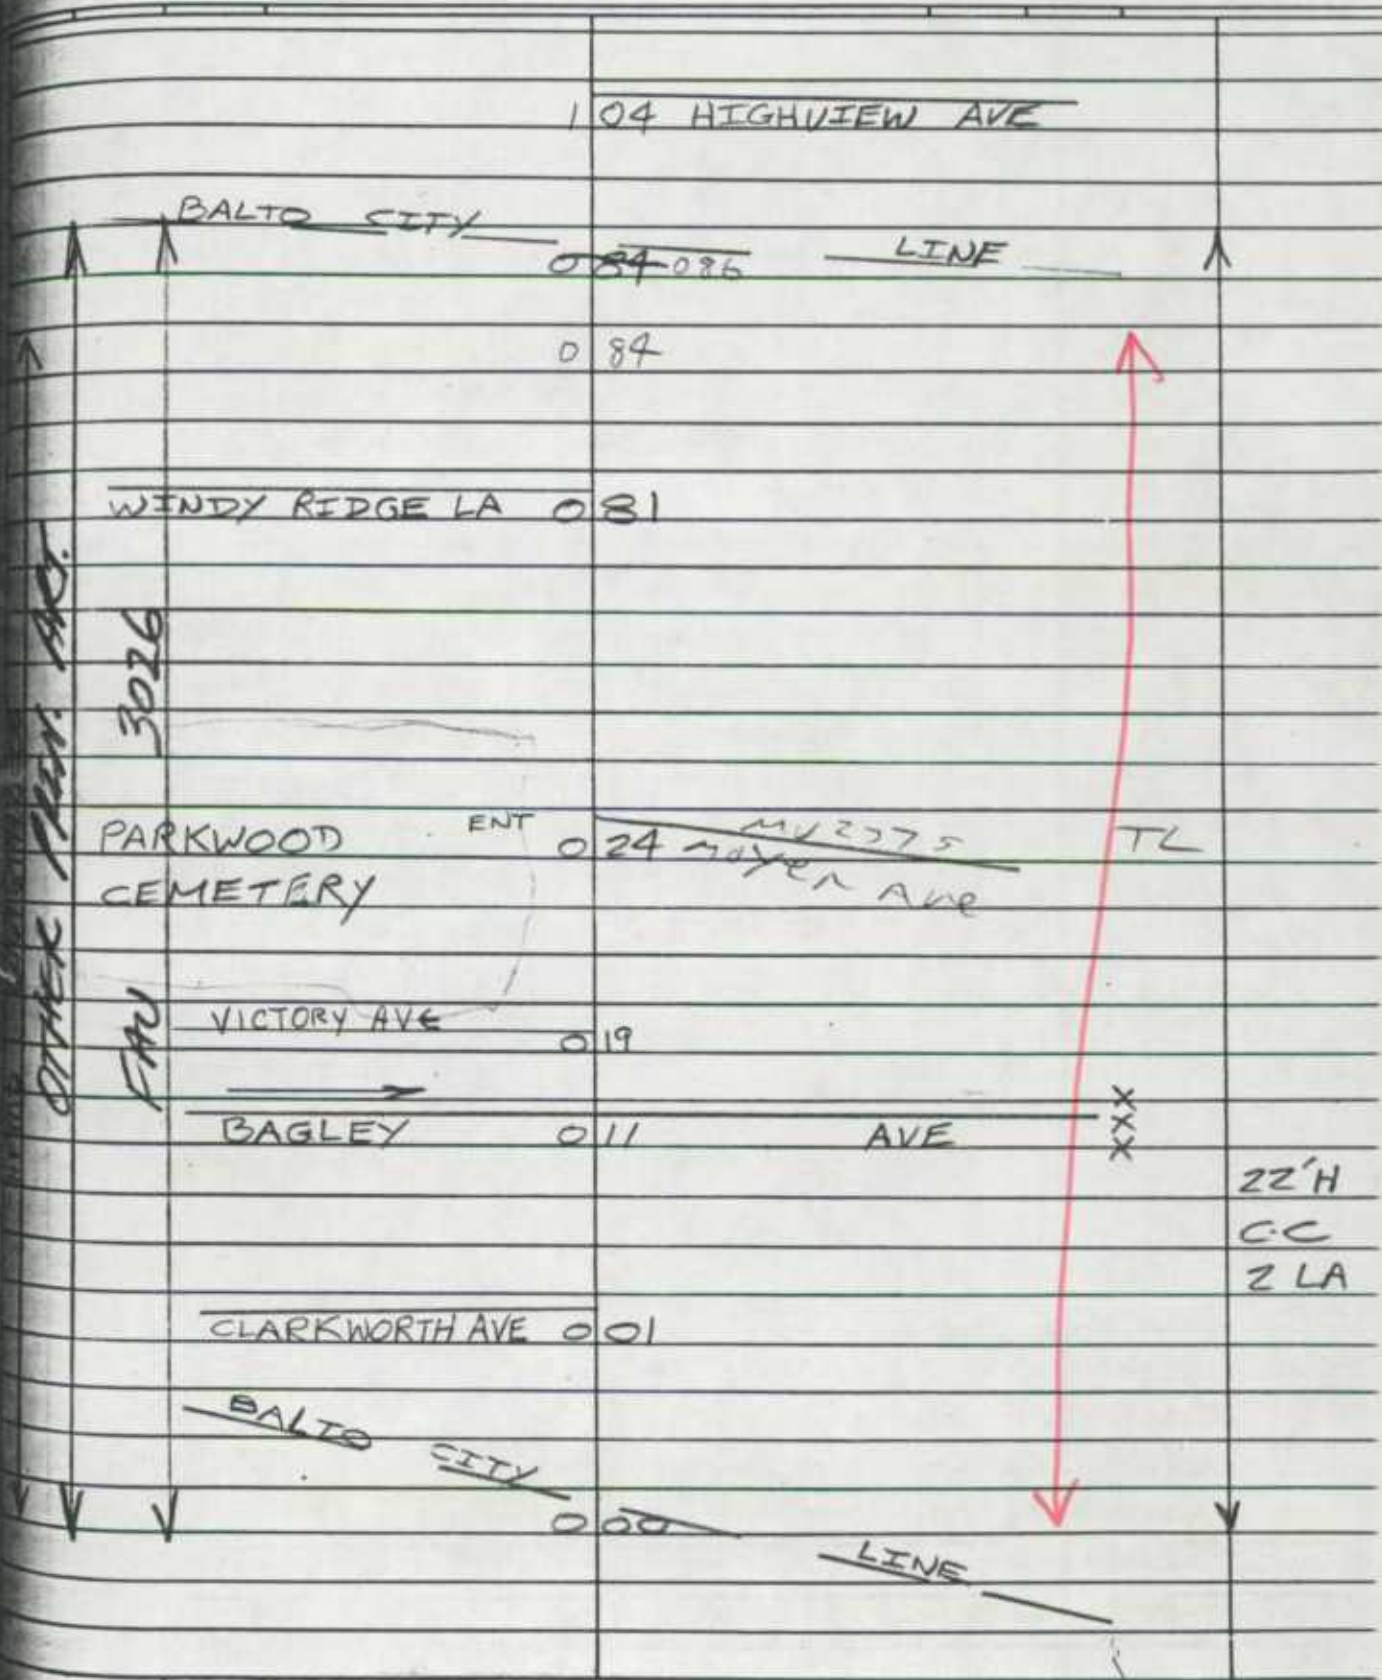 1 04 HIGHVIEW AVE
BALTO CITY LINE
0 84 086
0 84
WINDY RIDGE LA 0 81
OTHER PRIN. ART.
FAU 3026
PARKWOOD ENT 0 24
CEMETERY
TL
Moyer Ave
VICTORY AVE
0 19
BAGLEY 0 11 AVE
XXX
22'H
C-C
2 LA
CLARKWORTH AVE 0 01
BALTO CITY
0 00
LINE